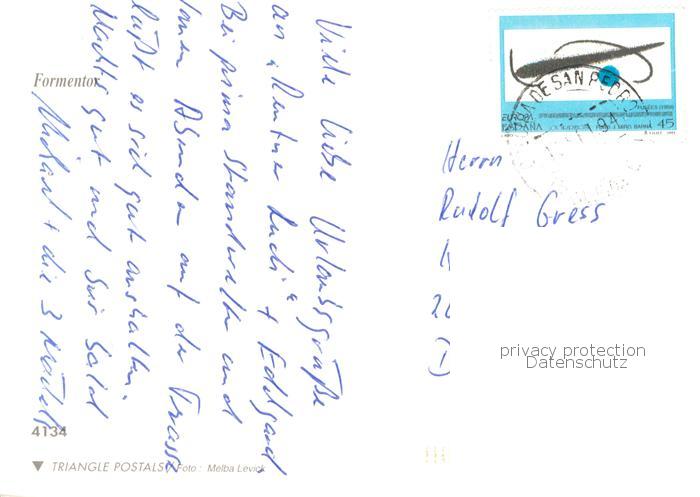 Viele liebe Urlaubsgrüße
an "Rentner Rudi" + Edelgard,
Bei prima Standwetter und
lauen Abenden auf der Terasse
läßt es sich gut aushalten.
Machts gut und bis bald
Michael + die 3 Mädels
Formentor
4134
TRIANGLE POSTALS Foto : Melba Levick
EUROPA
ESPAÑA
45
Herrn
Rudolf Gress
privacy protection
Datenschutz